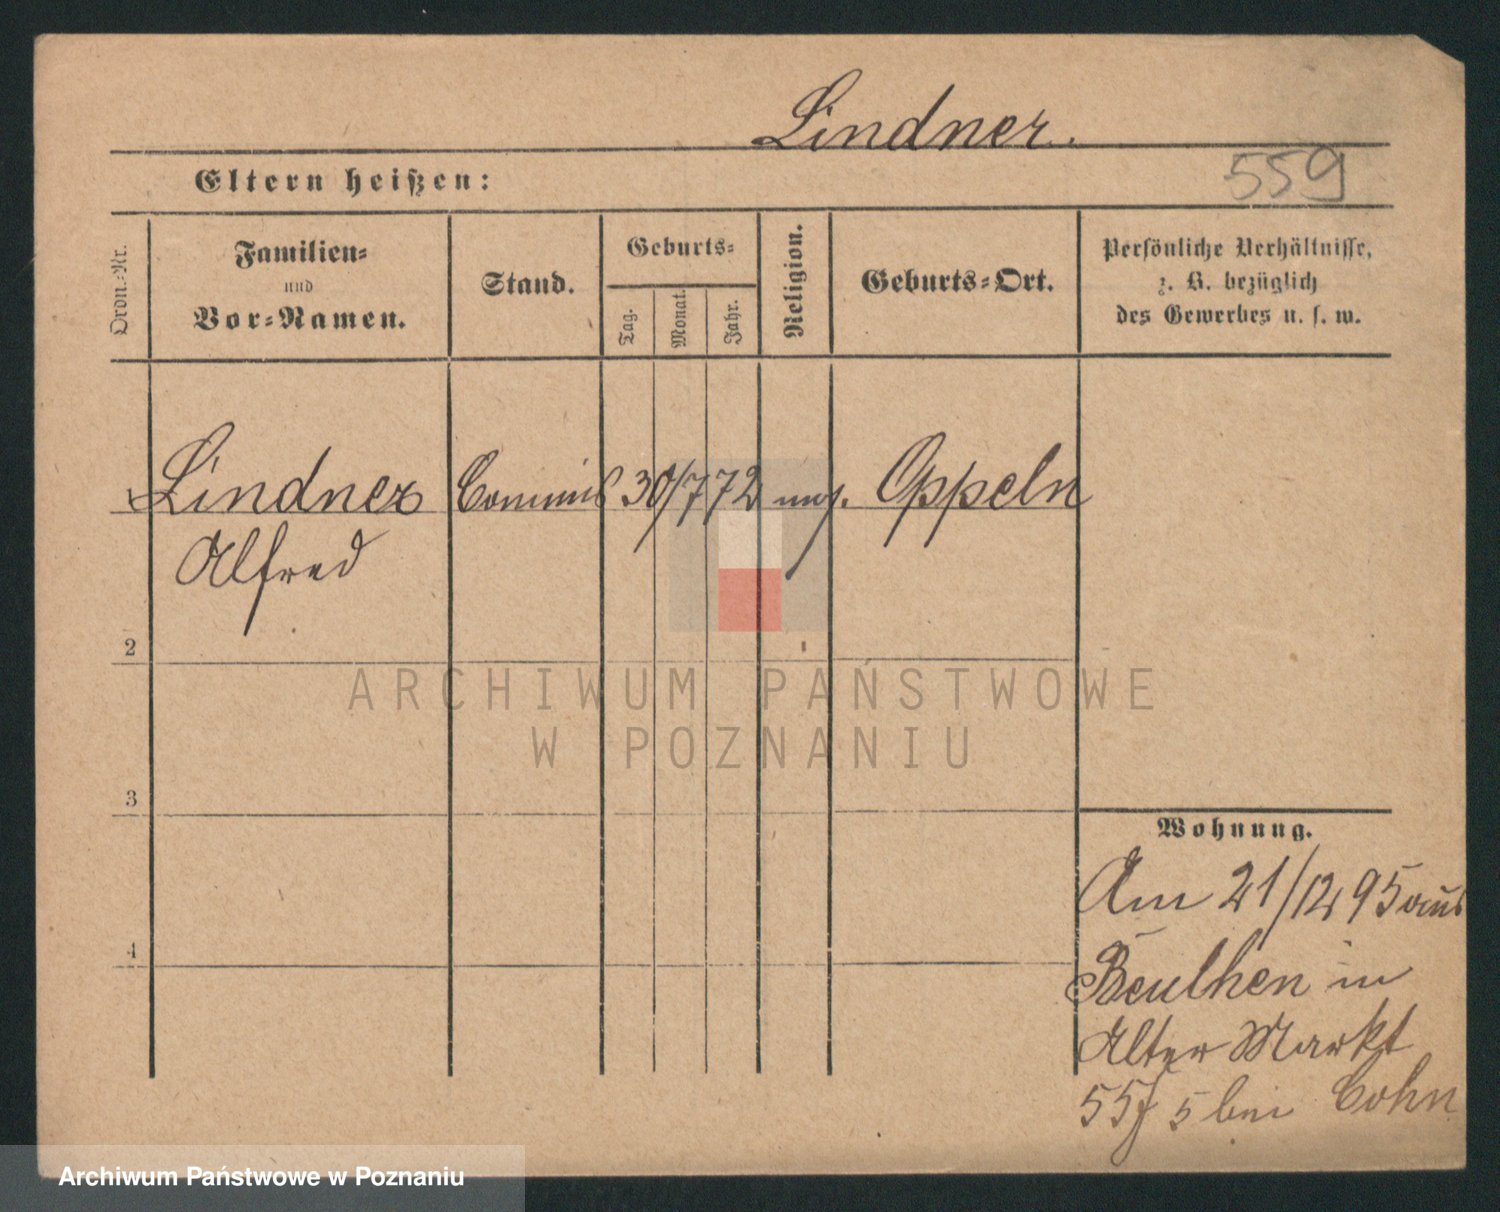 Lindner.
Eltern heißen:
559
Ordn.-Nr.
Familien-
und
Vor-Namen.
Stand.
Geburts-
Tag.
Monat.
Jahr.
Religion.
Geburts-Ort.
Persönliche Verhältnisse,
z. B. bezüglich
des Gewerbes u. s. w.
Lindner Commis 30/7 72 Oppeln
Alfred
2
3
4
ARCHIWUM PAŃSTWOWE
W POZNANIU
Wohnung.
Am 21/12 95 aus
Beuthen in
Alter Markt
55 5 bei Cohn
Archiwum Państwowe w Poznaniu